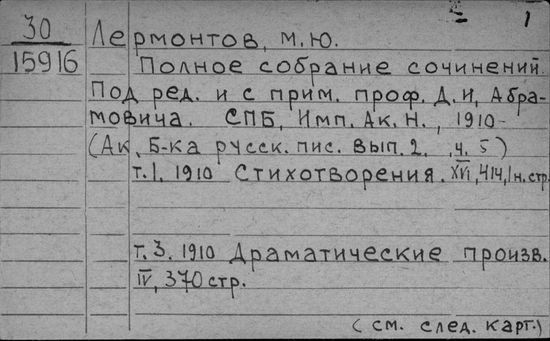 30 Лермонтов, М.Ю. 1
15916 Полное собрание сочинений.
Под ред. и с прим. проф. Д.И. Абра-
мовича. СПБ, Имп. Ак. Н., 1910-
(Ак. Б-ка русск. пис. Вып. 2. , 4. 5)
т.1. 1910 Стихотворения. XVI, 414, 1 н. стр.
т.3. 1910 Драматические произв.
IV, 370 стр.
(см. след. карт.)